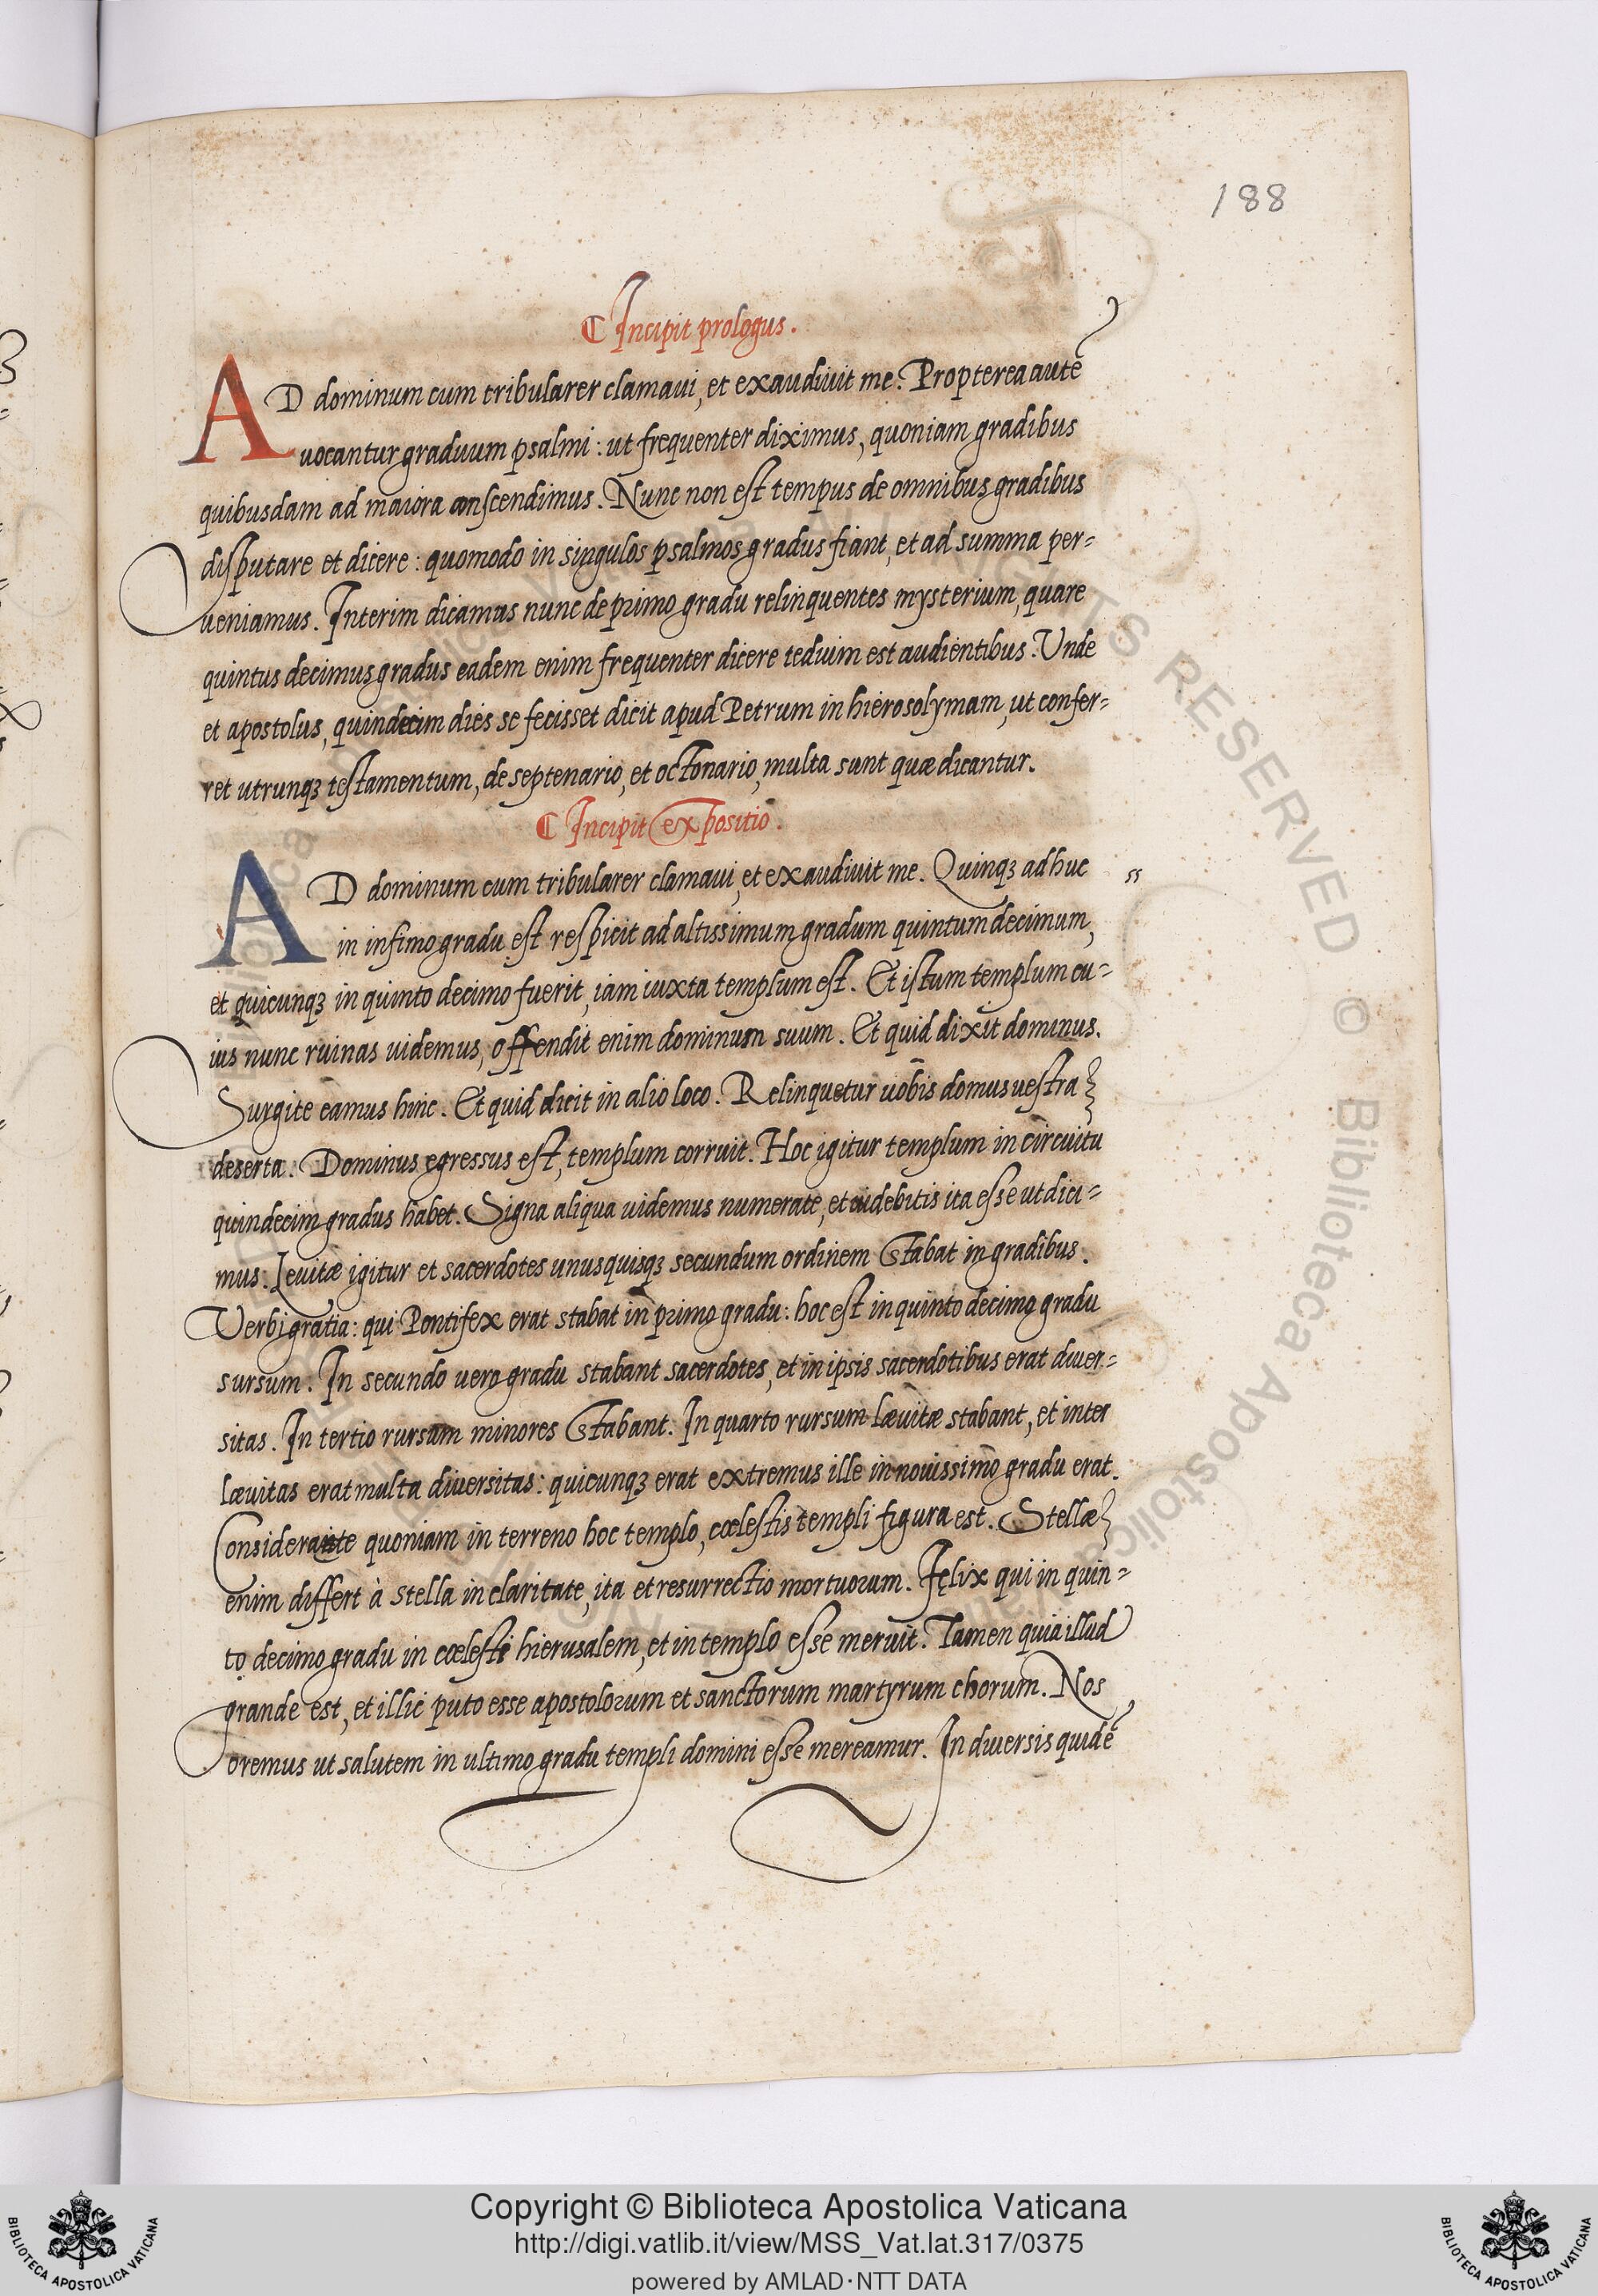 188
Incipit prologus.
AD dominum cum tribularer clamaui, et exaudiuit me. Propterea autē
uocantur graduum psalmi: ut frequenter diximus, quoniam gradibus
quibusdam ad maiora conscendimus. Nunc non est tempus de omnibus gradibus
disputare et dicere: quomodo in singulos psalmos gradus fiant, et ad summa per=
ueniamus. Interim dicamus nunc de primo gradu relinquentes mysterium, quare
quintus decimus gradus eadem enim frequenter dicere tedium est audientibus. Unde
et apostolus, quindecim dies se fecisset dicit apud Petrum in hierosolymam, ut confer=
ret utrunqꝫ testamentum, de septenario, et octonario, multa sunt quæ dicantur.
Incipit expositio.
AD dominum cum tribularer clamaui, et exaudiuit me. Quinqꝫ adhuc
in infimo gradu est respicit ad altissimum gradum quintum decimum,
et quicunqꝫ in quinto decimo fuerit, iam iuxta templum est. Et istum templum cu=
ius nunc ruinas uidemus, offendit enim dominum suum. Et quid dixit dominus.
Surgite eamus hinc. Et quid dicit in alio loco. Relinquetur uobis domus uestra
deserta. Dominus egressus est, templum corruit. Hoc igitur templum in circuitu
quindecim gradus habet. Signa aliqua uidemus numerate, et uidebitis ita esse ut dici=
mus. Leuitæ igitur et sacerdotes unusquisqꝫ secundum ordinem stabat in gradibus.
Verbi gratia: qui Pontifex erat stabat in primo gradu: hoc est in quinto decimo gradu
sursum. In secundo uero gradu stabant sacerdotes, et in ipsis sacerdotibus erat diuer=
sitas. In tertio rursum minores stabant. In quarto rursum Læuitæ stabant, et inter
Læuitas erat multa diuersitas: quicunqꝫ erat extremus ille in nouissimo gradu erat.
Considerante quoniam in terreno hoc templo, cœlestis templi figura est. Stellæ
enim differt à stella in claritate, ita et resurrectio mortuorum. Fęlix qui in quin=
to decimo gradu in cœlesti hierusalem, et in templo esse meruit. Tamen quia illud
grande est, et illic puto esse apostolorum et sanctorum martyrum chorum. Nos
oremus ut salutem in ultimo gradu templi domini esse mereamur. In diuersis quidē
Copyright © Biblioteca Apostolica Vaticana
http://digi.vatlib.it/view/MSS_Vat.lat.317/0375
powered by AMLAD·NTT DATA
BIBLIOTECA APOSTOLICA VATICANA
BIBLIOTECA APOSTOLICA VATICANA